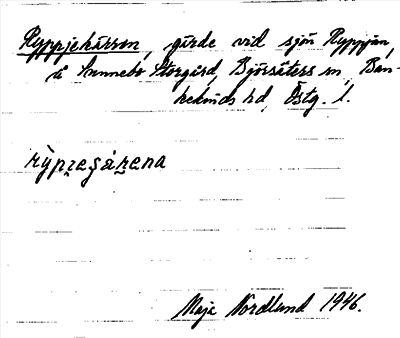 Ryppjekärren, gärde vid sjön Ryppjan,
å Sunnebo Storgård, Björsäters sn, Ban-
kekinds hd, Östg. l.
Maja Nordlund 1946.